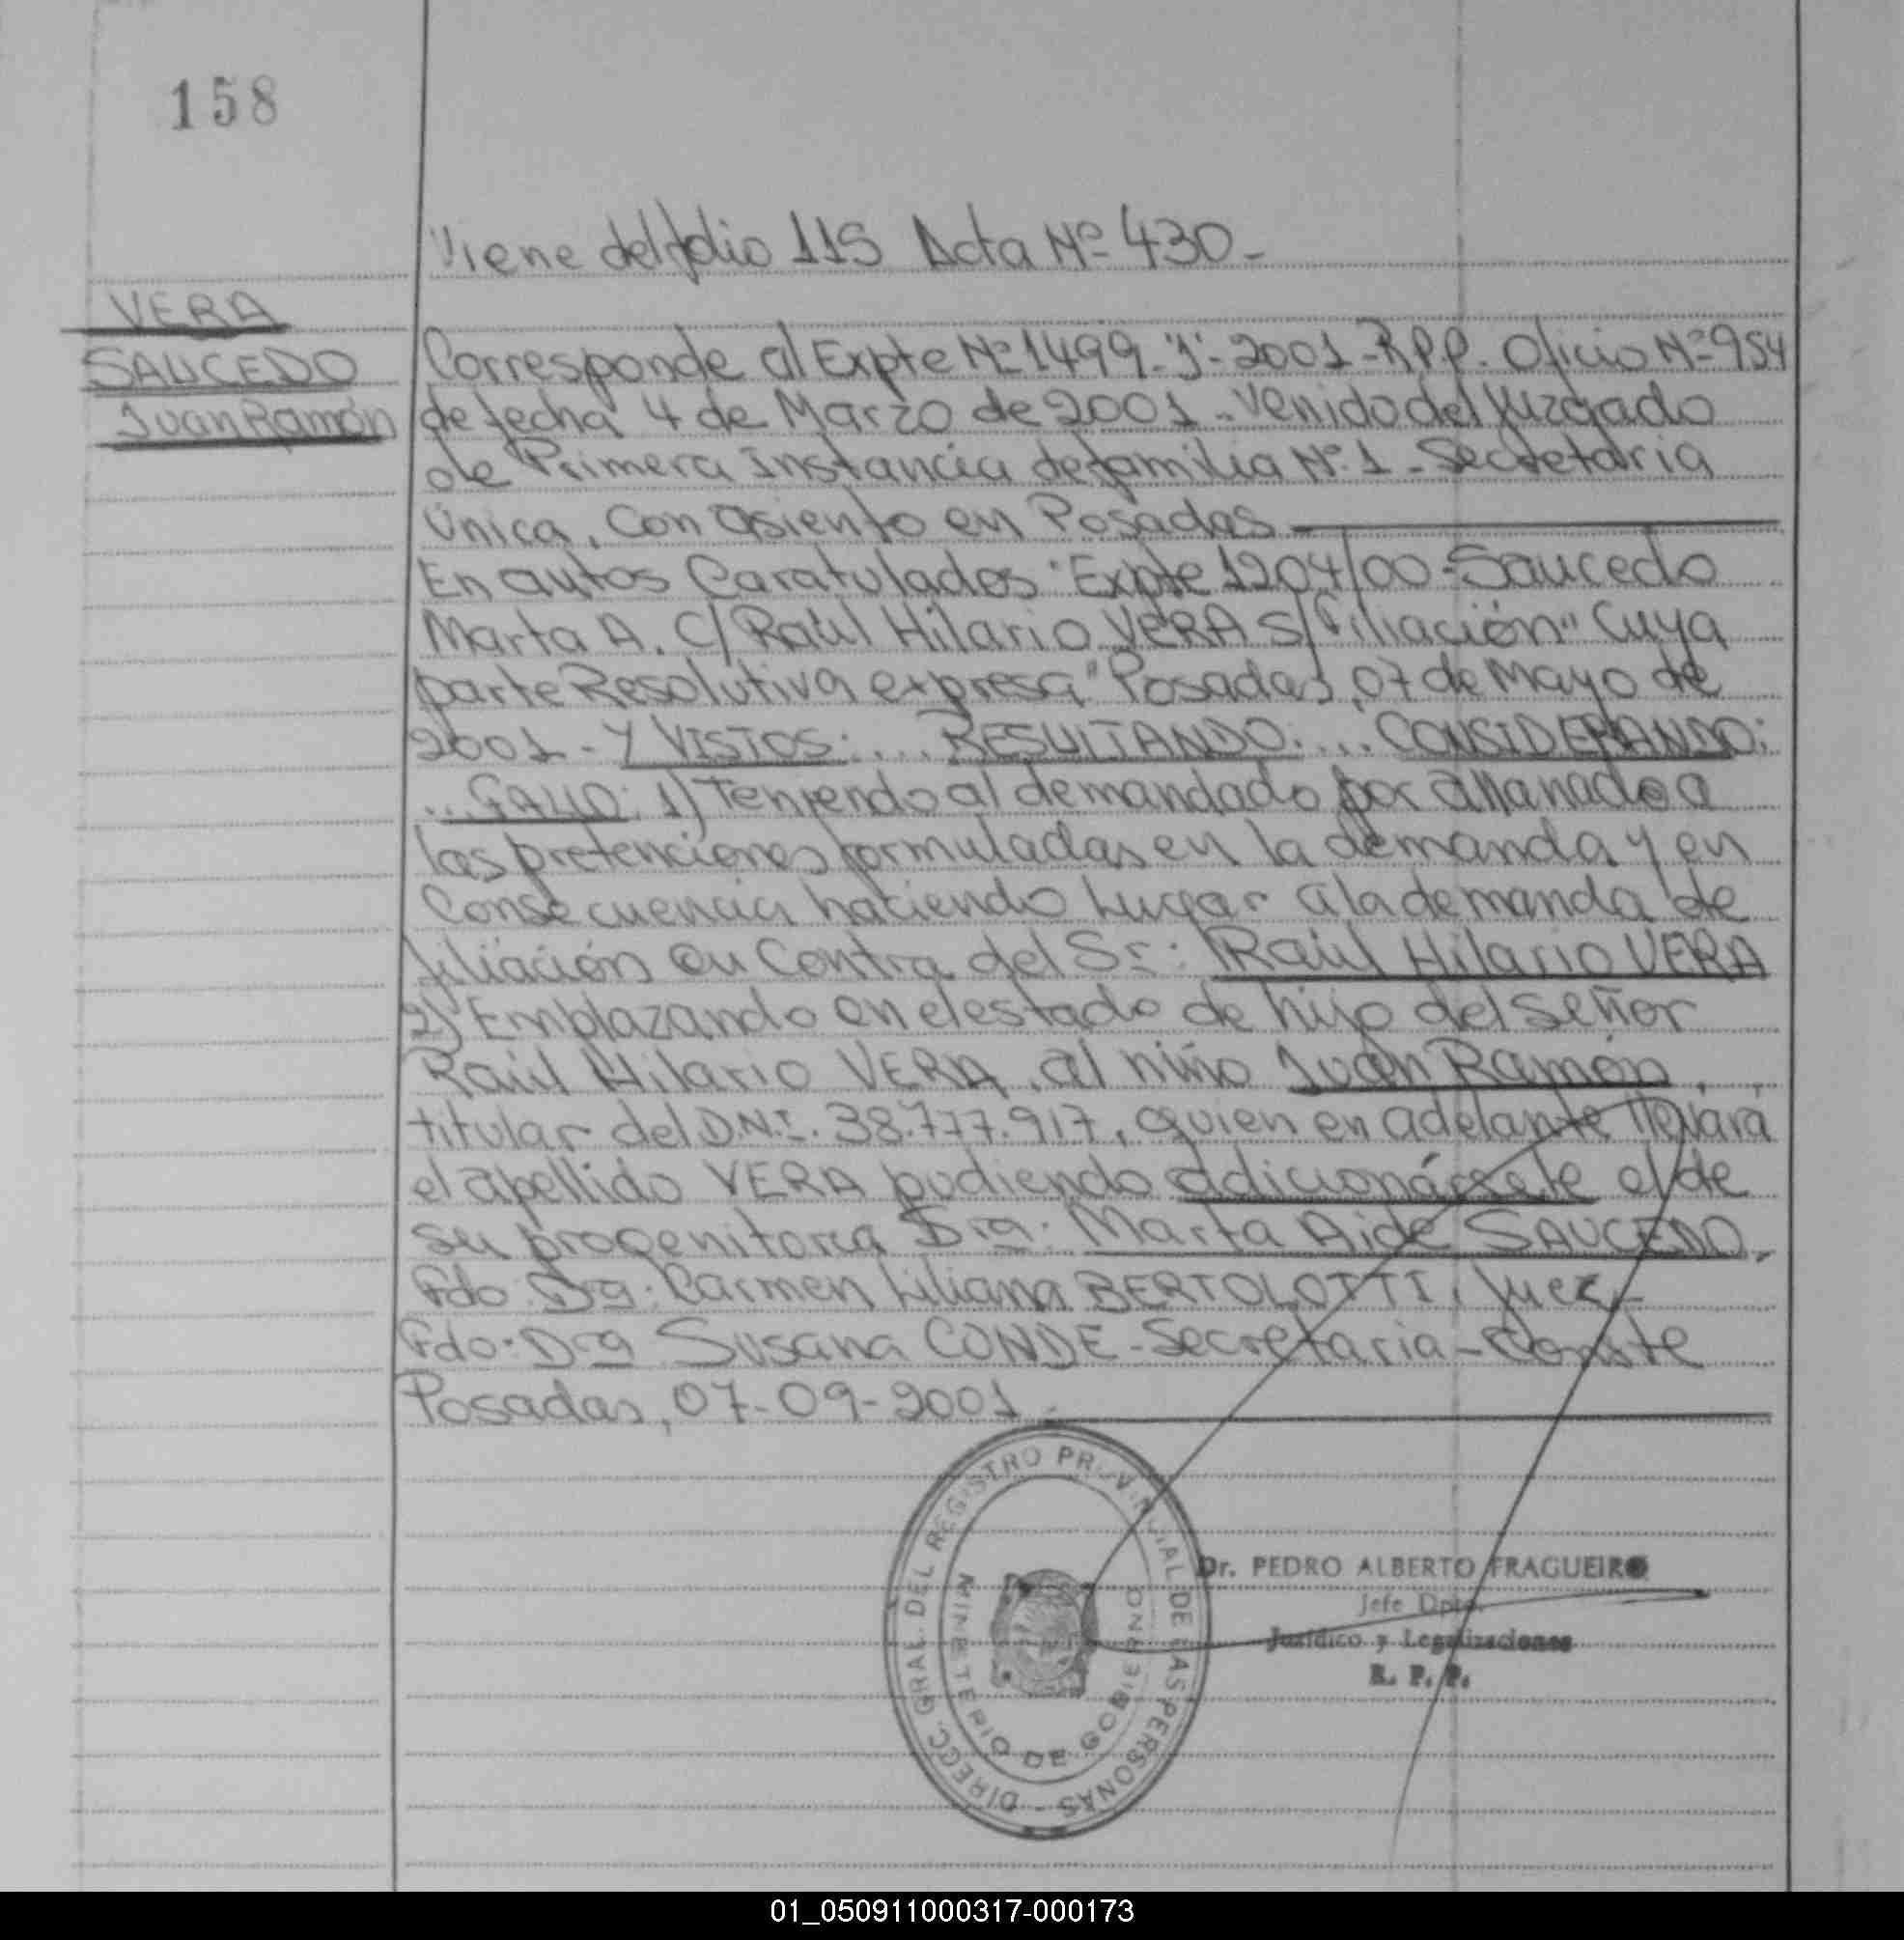 158
Viene del folio 115 Acta Nº 430-
VERA
SAUCEDO
Juan Ramón
Corresponde al Expte Nº 1499-"J"-2001-R.P.P. Oficio Nº 954
de fecha 4 de Marzo de 2001-Venido del Juzgado
de Primera Instancia de familia Nº 1-Secretaria
Única, Con asiento en Posadas
En autos Caratulados "Expte 1204/00-Saucedo
Marta A. C/ Raúl Hilario VERA S/ Filiación" Cuya
parte Resolutiva expresa "Posadas, 07 de Mayo de
2001-Y VISTOS:... RESULTANDO:... CONSIDERANDO:
...FALLO: 1) Teniendo al demandado por allanado a
las pretenciones formuladas en la demanda y en
Consecuencia haciendo Lugar a la demanda de
filiación en Contra del Sr: Raúl Hilario VERA
2) Emplazando en el estado de hijo del Señor
Raúl Hilario VERA, al niño Juan Ramón,
titular del D.N.I. 38.777.917, quien en adelante llevará
el apellido VERA pudiendo adicionársele el de
su progenitora Dra. Marta Aide SAUCEDO.
Fdo. Dra. Carmen Liliana BERTOLOTTI, Juez,-
Fdo. Dra Susana CONDE-Secretaria-Conste
Posadas, 07-09-2001.
DIRECC. GRAL. DEL REGISTRO PROVINCIAL DE LAS PERSONAS -
MINISTERIO DE GOBIERNO
Dr. PEDRO ALBERTO FRAGUEIRO
Jefe Dpto.
Jurídico y Legalizaciones
R. P. P.
01_050911000317-000173